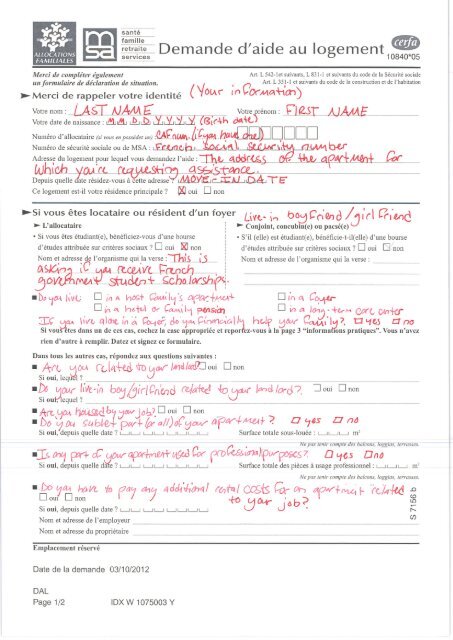 ALLOCATIONS
FAMILIALES
msa
santé
famille
retraite
services
Demande d'aide au logement
cerfa
10840*05
Merci de compléter également
un formulaire de déclaration de situation.
Art. L 542-1et suivants, L 831-1 et suivants du code de la Sécurité sociale
Art. L 351-1 et suivants du code de la construction et de l'habitation
Merci de rappeler votre identité (Your information)
Votre nom : LAST NAME Votre prénom : FIRST NAME
Votre date de naissance : M M D D Y Y Y Y (Birth date)
Numéro d'allocataire (si vous en possédez un) CAF num (if you have one)
Numéro de sécurité sociale ou de MSA : French social security number
Adresse du logement pour lequel vous demandez l'aide : The address of the apartment for
which you're requesting assistance.
Depuis quelle date résidez-vous à cette adresse ? MOVE-IN DATE
Ce logement est-il votre résidence principale ? oui non
Si vous êtes locataire ou résident d'un foyer
Live-in boyfriend/girlfriend
L'allocataire
Conjoint, concubin(e) ou pacsé(e)
• Si vous êtes étudiant(e), bénéficiez-vous d'une bourse
d'études attribuée sur critères sociaux ? oui non
• S'il (elle) est étudiant(e), bénéficie-t-il(elle) d'une bourse
d'études attribuée sur critères sociaux ? oui non
Nom et adresse de l'organisme qui la verse : This is
asking if you receive French
government student scholarships.
Nom et adresse de l'organisme qui la verse :
Do you live: in a host family's apartment in a foyer
in a hotel or family pension in a long-term care center
If you live alone in a foyer, do you financially help your family? yes no
Si vous êtes dans un de ces cas, cochez la case appropriée et reportez-vous à la page 3 "informations pratiques". Vous n'avez
rien d'autre à remplir. Datez et signez ce formulaire.
Dans tous les autres cas, répondez aux questions suivantes :
Are you related to your landlord? oui non
Si oui, lequel ?
Do your live-in boy/girlfriend related to your landlord? oui non
Si oui, lequel ?
Are you housed by your job? oui non
Do you sublet part (or all) of your apartment? yes no
Si oui, depuis quelle date ? Surface totale sous-louée : m²
Ne pas tenir compte des balcons, loggias, terrasses.
Is any part of your apartment used for professional purposes? yes no
Si oui, depuis quelle date ? Surface totale des pièces à usage professionnel : m²
Ne pas tenir compte des balcons, loggias, terrasses.
Do you have to pay any additional rental costs for an apartment related
to your job?
oui non
Si oui, depuis quelle date ?
Nom et adresse de l'employeur
Nom et adresse du propriétaire
S 7156 b
Emplacement réservé
Date de la demande 03/10/2012
DAL
Page 1/2 IDX W 1075003 Y